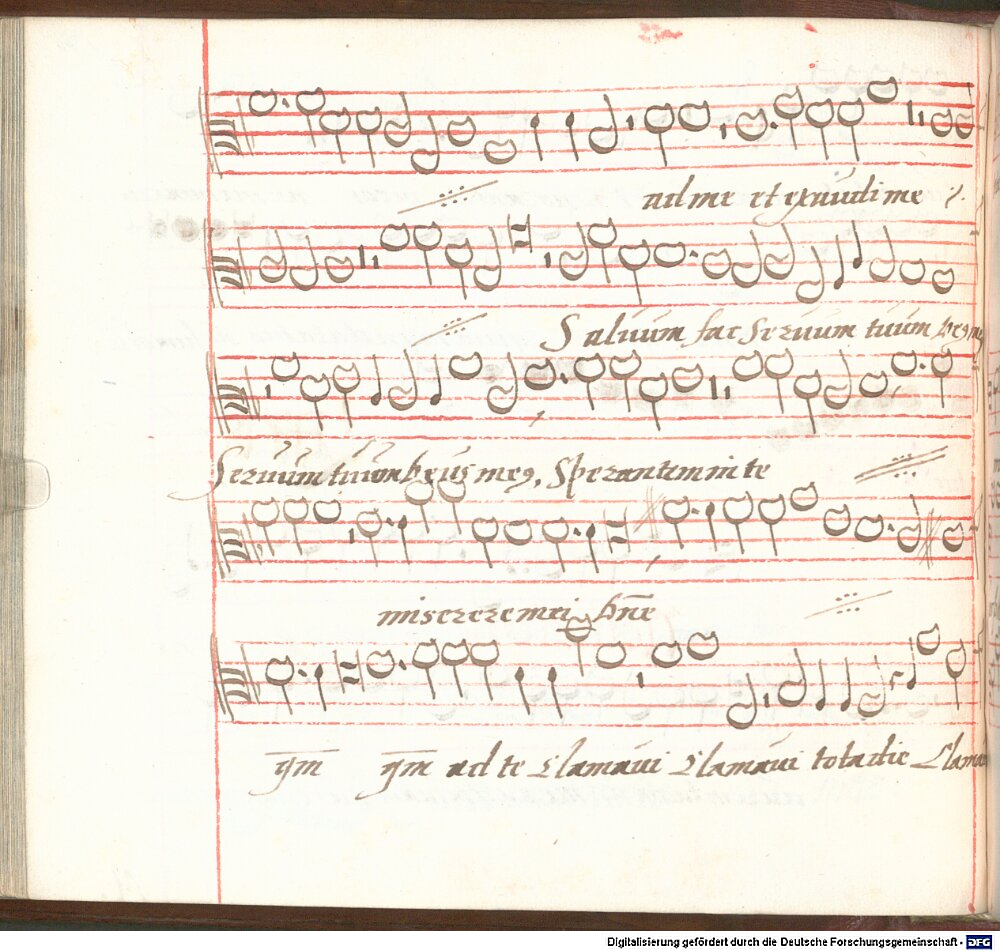 ad me et exaudi me
Saluum fac Seruum tuum
Seruum tuum Deus me9, Sperantem in te
miserere mei Dñe
qm qm ad te Clamaui Clamaui tota die
Digitalisierung gefördert durch die Deutsche Forschungsgemeinschaft - DFG